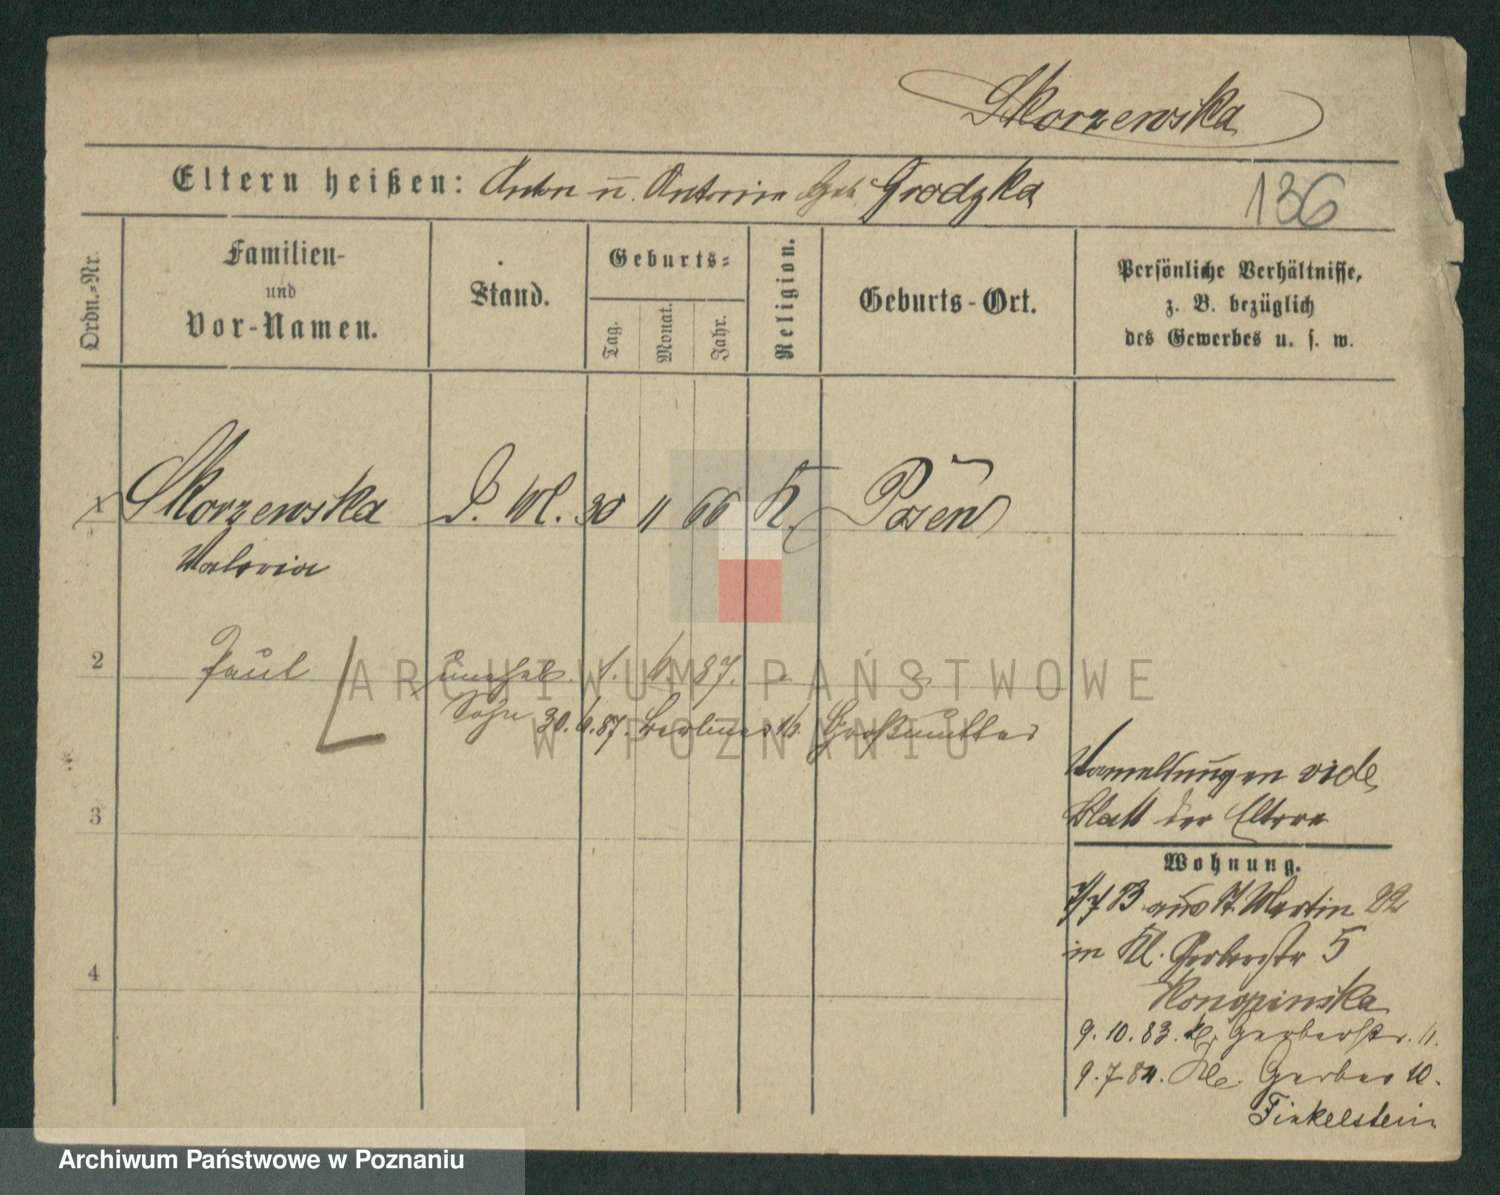 Skorzewska
Eltern heißen: Anton u. Antonina geb. Grodzka
136
Ordn.-Nr.
Familien-
und
Vor-Namen.
Stand.
Geburts-
Tag.
Monat.
Jahr.
Religion.
Geburts-Ort.
Persönliche Verhältnisse,
z. B. bezüglich
des Gewerbes u. s. w.
1 Skorzewska D. Wl. 30 11 66 K. Posen
Valeria
2 Paul unehel. 1. 6. 87.
Sohn 30. 6. 87. Großmutter
3
4
Vermeldungen vide
Blatt der Eltern
Wohnung.
7/7 83 aus St. Martin 22
in Kl. Gerberstr 5
Konopinska
9. 10. 83. Kl. Gerberstr. 11.
9. 7. 84. Kl. Gerber 10.
Finkelstein
ARCHIWUM PAŃSTWOWE
W POZNANIU
Archiwum Państwowe w Poznaniu